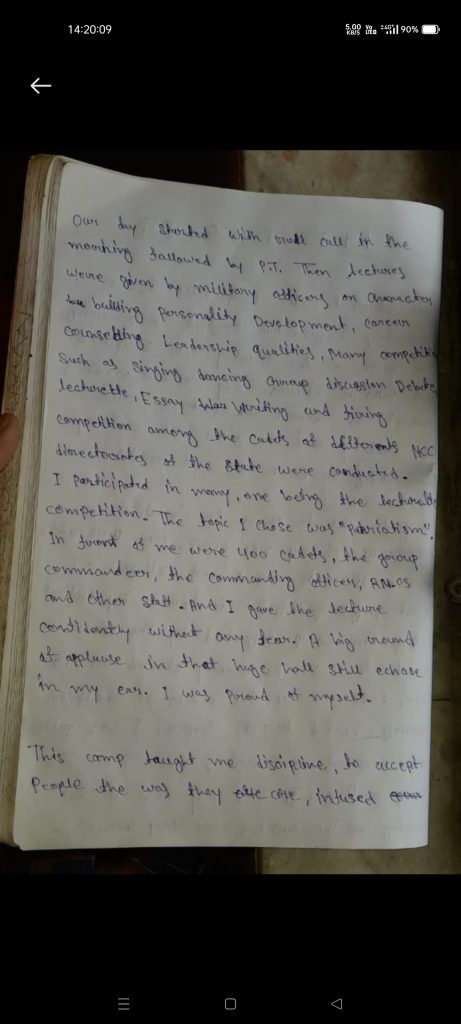 14:20:09
5.00 KB/S Vo LTE 4G 90%
Our day started with roll call in the
morning followed by P.T. Then lectures
were given by military officers on character
building personality Development, career
counselling Leadership qualities, Many competiti
Such as Singing dancing Group discussion Debate,
lecturette, Essay Writing and firing
competition among the cadets of differents NCC
directorates of the state were conducted.
I participated in many, one being the lecturette
competition. The topic I chose was "Patriotism".
In front of me were 400 cadets, the group
commandeer, the commanding officer,
and other staff. And I gave the lecture
confidently without any fear. A big round
of applause in that huge hall still echose
in my ear. I was proud of myself.
This camp taught me discipline, to accept
People the was they are, infused